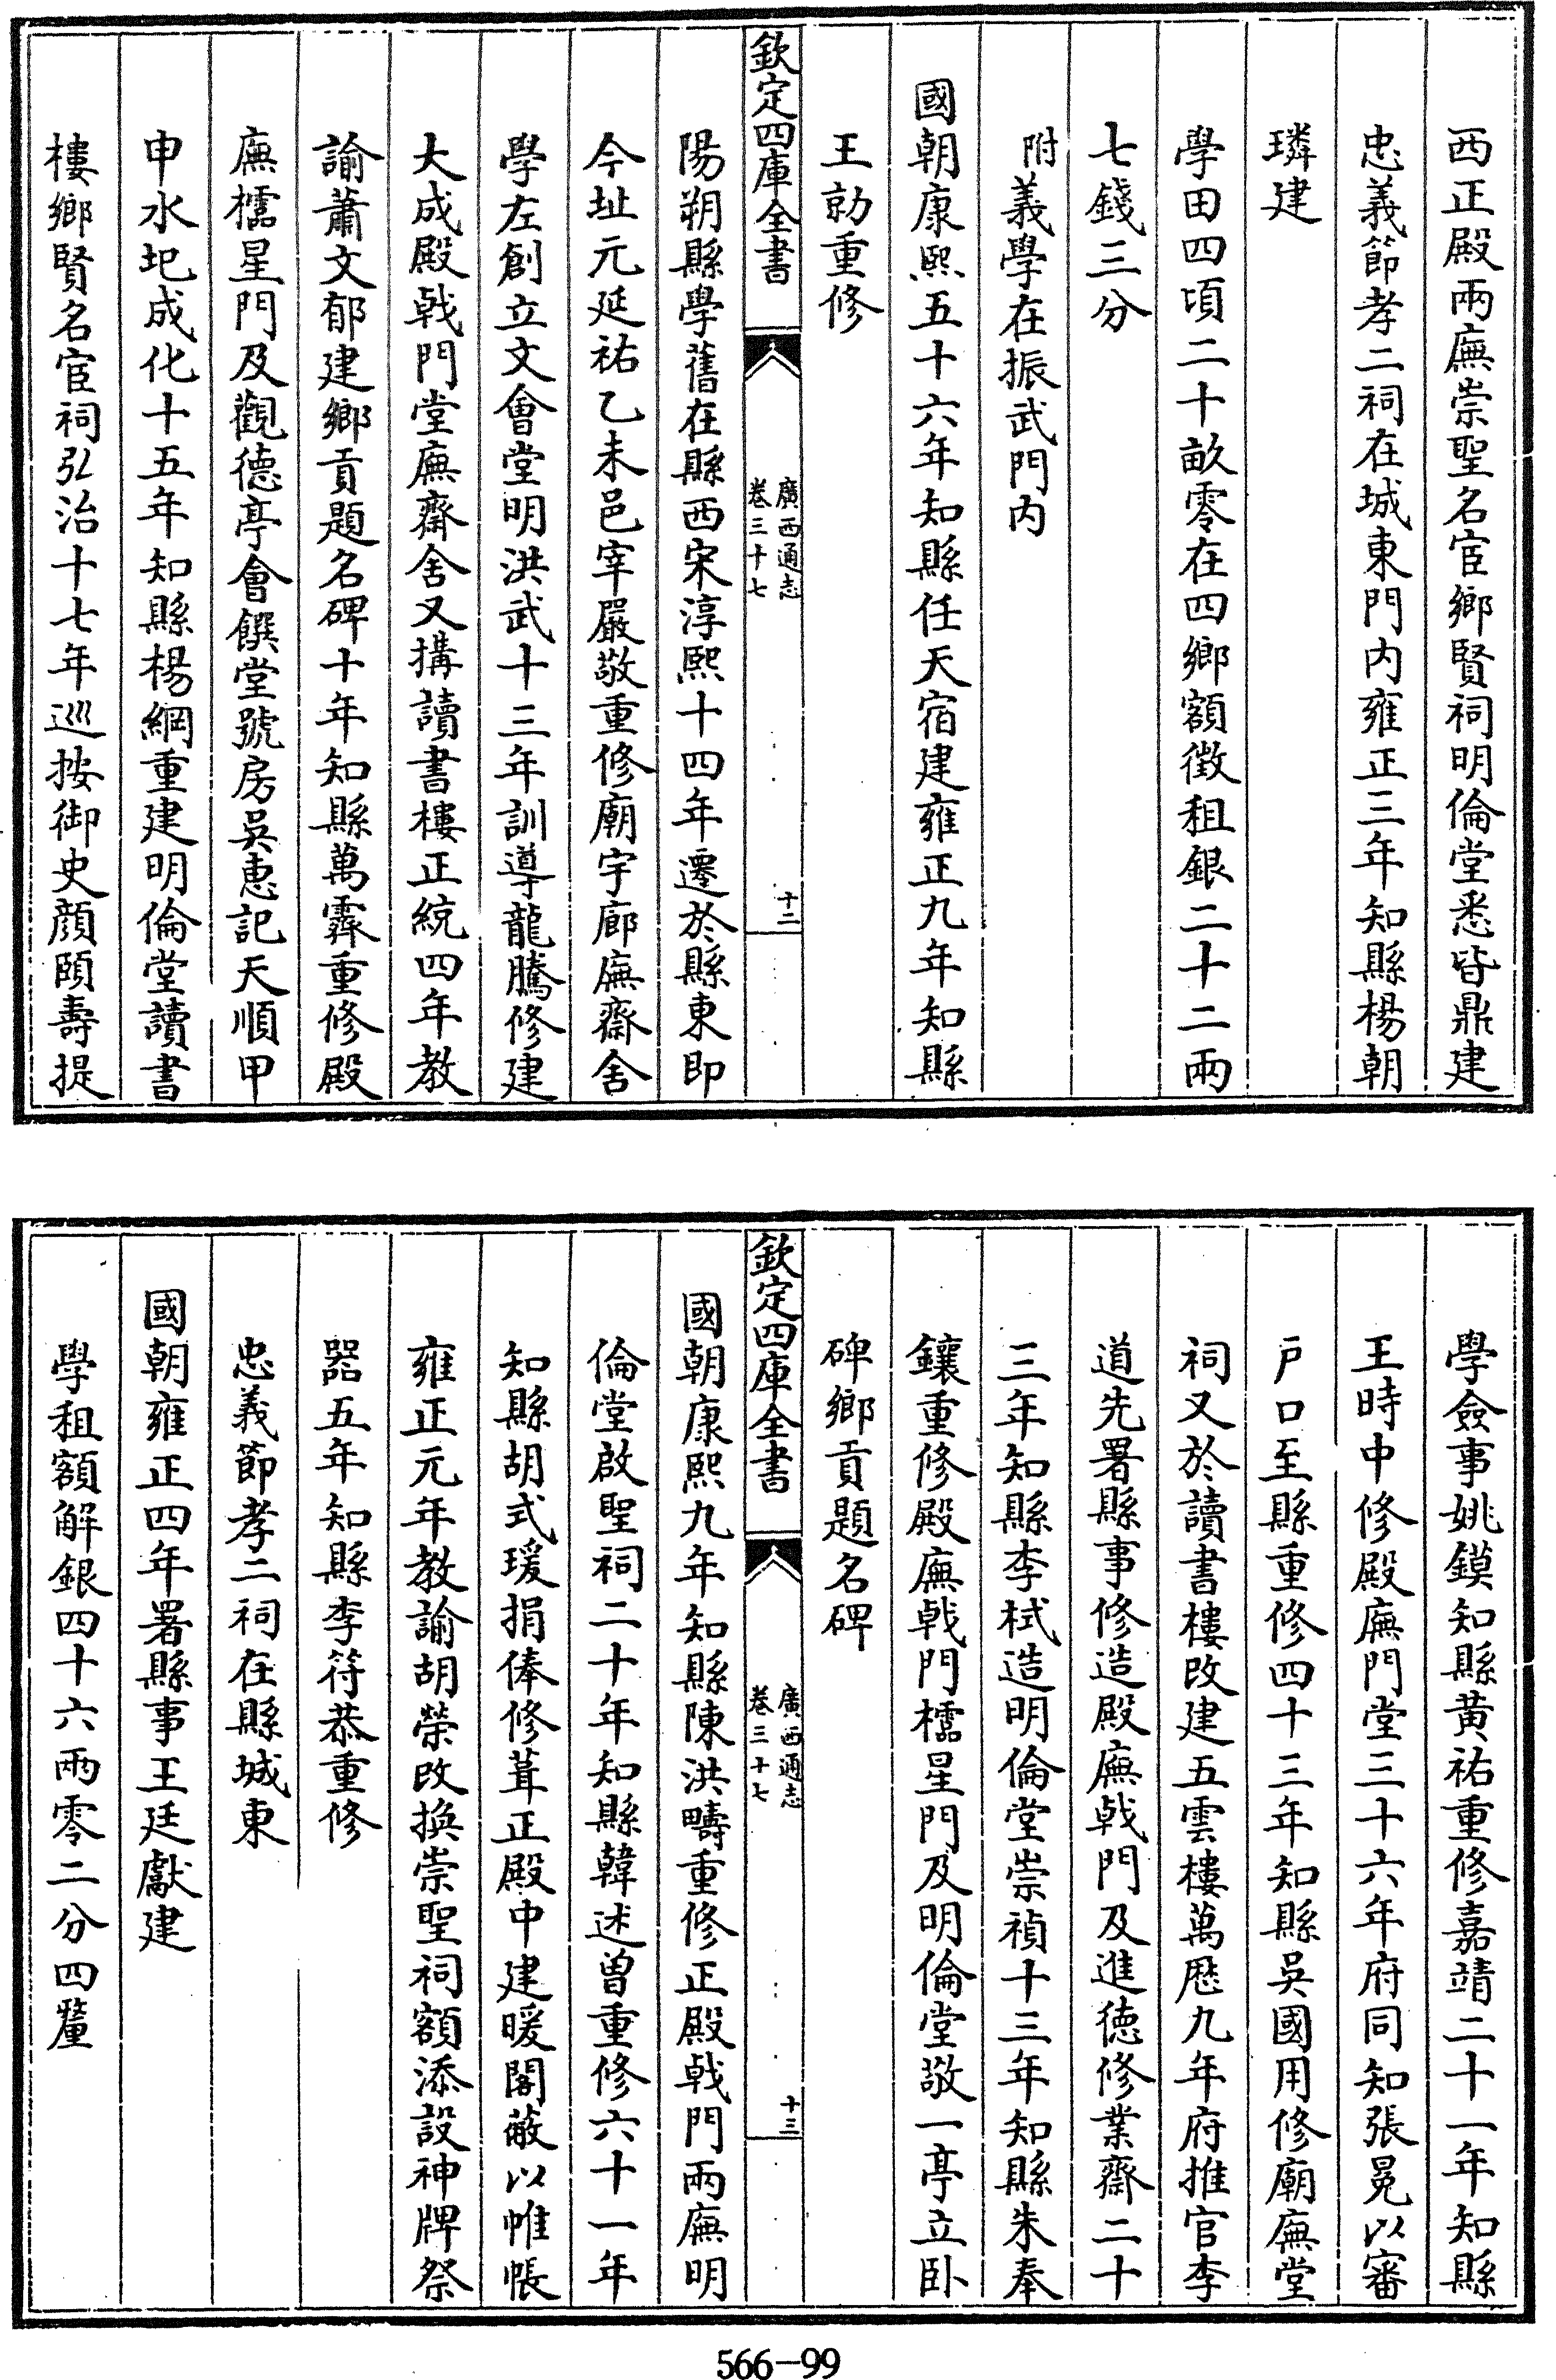 西正殿兩廡崇聖名宦鄉賢祠明倫堂悉皆鼎建
忠義節孝二祠在城東門内雍正三年知縣楊朝
璘建
學田四頃二十畝零在四鄉額徵租銀二十二兩
七錢三分
附義學在振武門内
國朝康熙五十六年知縣任天宿建雍正九年知縣
王勍重修
欽定四庫全書
廣西通志
卷三十七
十二
陽朔縣學舊在縣西宋淳熙十四年遷於縣東即
今址元延祐乙未邑宰嚴敬重修廟宇廊廡齋舍
學左創立文會堂明洪武十三年訓導龍騰修建
大成殿戟門堂廡齋舍又搆讀書樓正統四年教
諭蕭文郁建鄉貢題名碑十年知縣萬霖重修殿
廡櫺星門及觀德亭會饌堂號房吳惠記天順甲
申水圯成化十五年知縣楊綱重建明倫堂讀書
樓鄉賢名宦祠弘治十七年巡按御史顔頤壽提
學僉事姚鏌知縣黄祐重修嘉靖二十一年知縣
王時中修殿廡門堂三十六年府同知張冕以審
戶口至縣重修四十三年知縣吳國用修廟廡堂
祠又於讀書樓改建五雲樓萬厯九年府推官李
道先署縣事修造殿廡戟門及進德修業齋二十
三年知縣李栻造明倫堂崇禎十三年知縣朱奉
鑲重修殿廡戟門櫺星門及明倫堂敬一亭立卧
碑鄉貢題名碑
欽定四庫全書
廣西通志
卷三十七
十三
國朝康熙九年知縣陳洪疇重修正殿戟門兩廡明
倫堂啟聖祠二十年知縣韓述曾重修六十一年
知縣胡式瑗捐俸修葺正殿中建暖閣蔽以帷帳
雍正元年教諭胡榮改換崇聖祠額添設神牌祭
器五年知縣李符恭重修
忠義節孝二祠在縣城東
國朝雍正四年署縣事王廷獻建
學租額解銀四十六兩零二分四釐
566-99